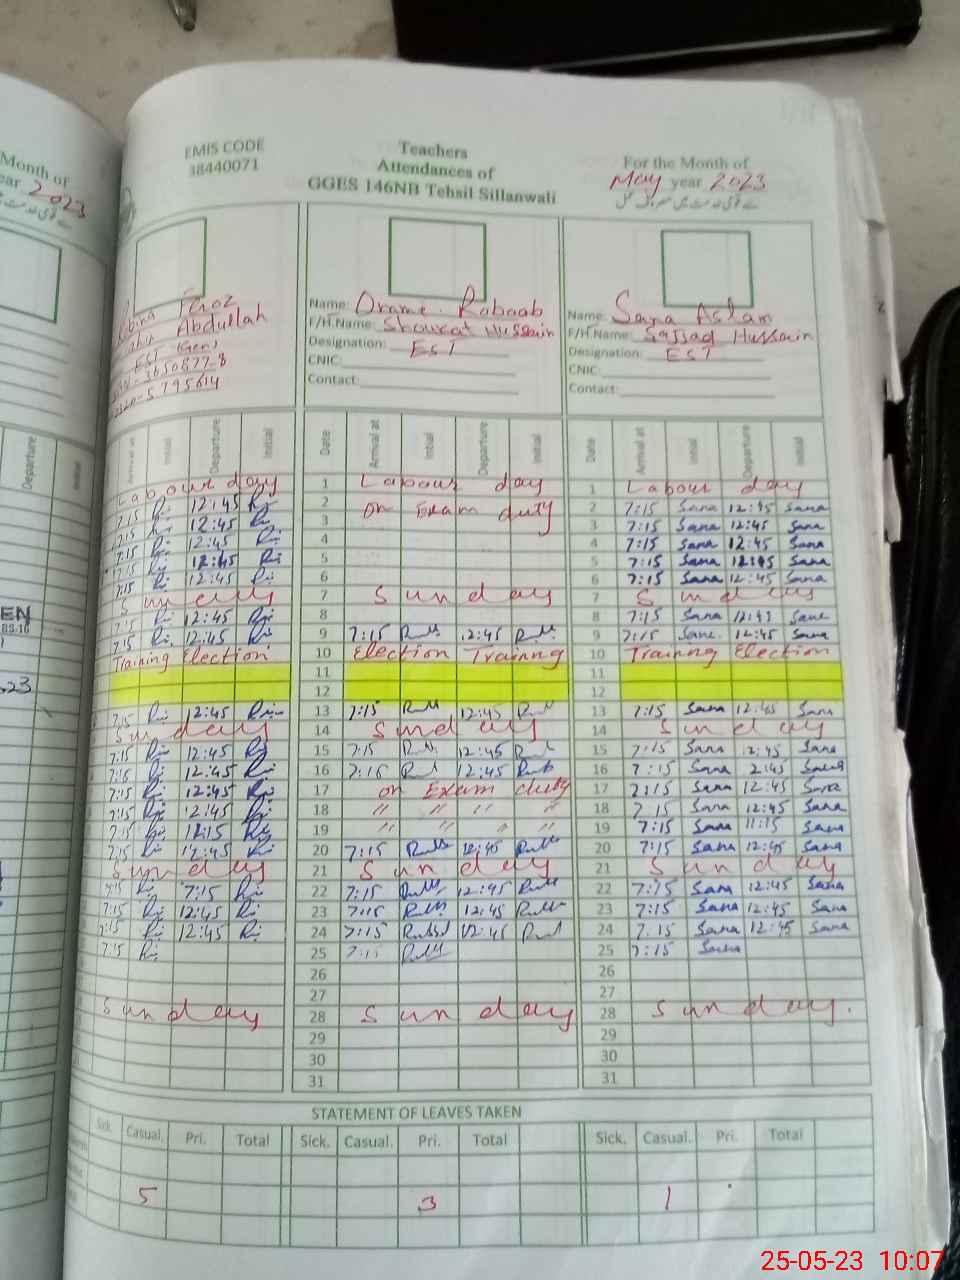 Month of
ear 2023
EMIS CODE
38440071
Teachers
Attendances of
GGES 146NB Tehsil Sillanwali
For the Month of
May year 2023
Abdullah
EST (Gen)
Name: Robaab
F/H.Name: Showkat Hussain
Designation: EST
CNIC:
Contact:
Name: Sana Aslam
F/H.Name: Sajjad Hussain
Designation: EST
CNIC:
Contact:
Departure Initial
Arrival at Initial Departure Initial
Date Arrival at Initial Departure Initial
Date Arrival at Initial Departure Initial
Labour day 1 Labour day 1 Labour day
7:15 12:45 2 on Exam duty 2 7:15 Sana 12:45 Sana
7:15 12:45 3 3 7:15 Sana 12:45 Sana
7:15 12:45 4 4 7:15 Sana 12:45 Sana
7:15 12:45 5 5 7:15 Sana 12:45 Sana
7:15 12:45 6 6 7:15 Sana 12:45 Sana
Sunday 7 Sunday 7 Sunday
7:15 12:45 8 8 7:15 Sana 12:45 Sana
7:15 12:45 9 7:15 12:45 9 7:15 Sana 12:45 Sana
Training Election 10 Election Training 10 Training Election
11 11
12 12
7:15 12:45 13 7:15 12:45 13 7:15 Sana 12:45 Sana
Sunday 14 Sunday 14 Sunday
7:15 12:45 15 7:15 12:45 15 7:15 Sana 12:45 Sana
7:15 12:45 16 7:15 12:45 16 7:15 Sana 2:45 Sana
7:15 12:45 17 on Exam duty 17 7:15 Sana 12:45 Sana
7:15 12:45 18 " " " " 18 7:15 Sana 12:45 Sana
7:15 11:15 19 " " " " 19 7:15 Sana 11:15 Sana
7:15 12:45 20 7:15 12:45 20 7:15 Sana 12:45 Sana
Sunday 21 Sunday 21 Sunday
7:15 7:15 22 7:15 12:45 22 7:15 Sana 12:45 Sana
7:15 12:45 23 7:15 12:45 23 7:15 Sana 12:45 Sana
7:15 12:45 24 7:15 12:45 24 7:15 Sana 12:45 Sana
7:15 25 7:15 25 7:15 Sana
26 26
27 27
Sunday 28 Sunday 28 Sunday.
29 29
30 30
31 31
STATEMENT OF LEAVES TAKEN
Sick. Casual. Pri. Total Sick. Casual. Pri. Total Sick. Casual. Pri. Total
5 3 1
25-05-23 10:07